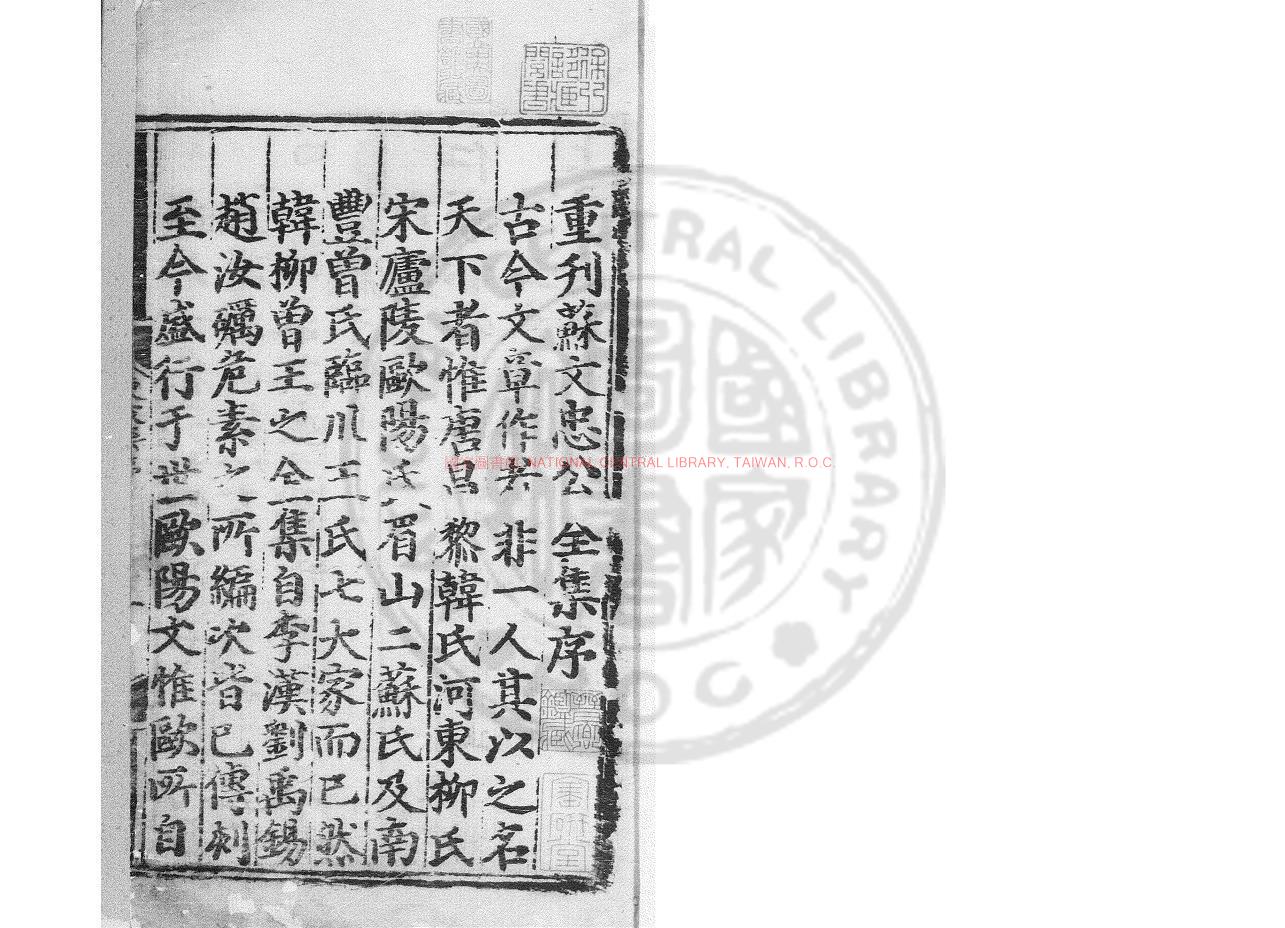 重刋蘇文忠公全集序
古今文章作者非一人其以之名
天下者惟唐昌黎韓氏河東柳氏
宋廬陵歐陽氏眉山二蘇氏及南
豐曾氏臨川王氏七大家而已然
韓柳曾王之全集自李漢劉禹錫
趙汝礪危素之所編次皆已傳刻
至今盛行于世歐陽文惟歐所自
國家圖書館 NATIONAL CENTRAL LIBRARY, TAIWAN, R.O.C.